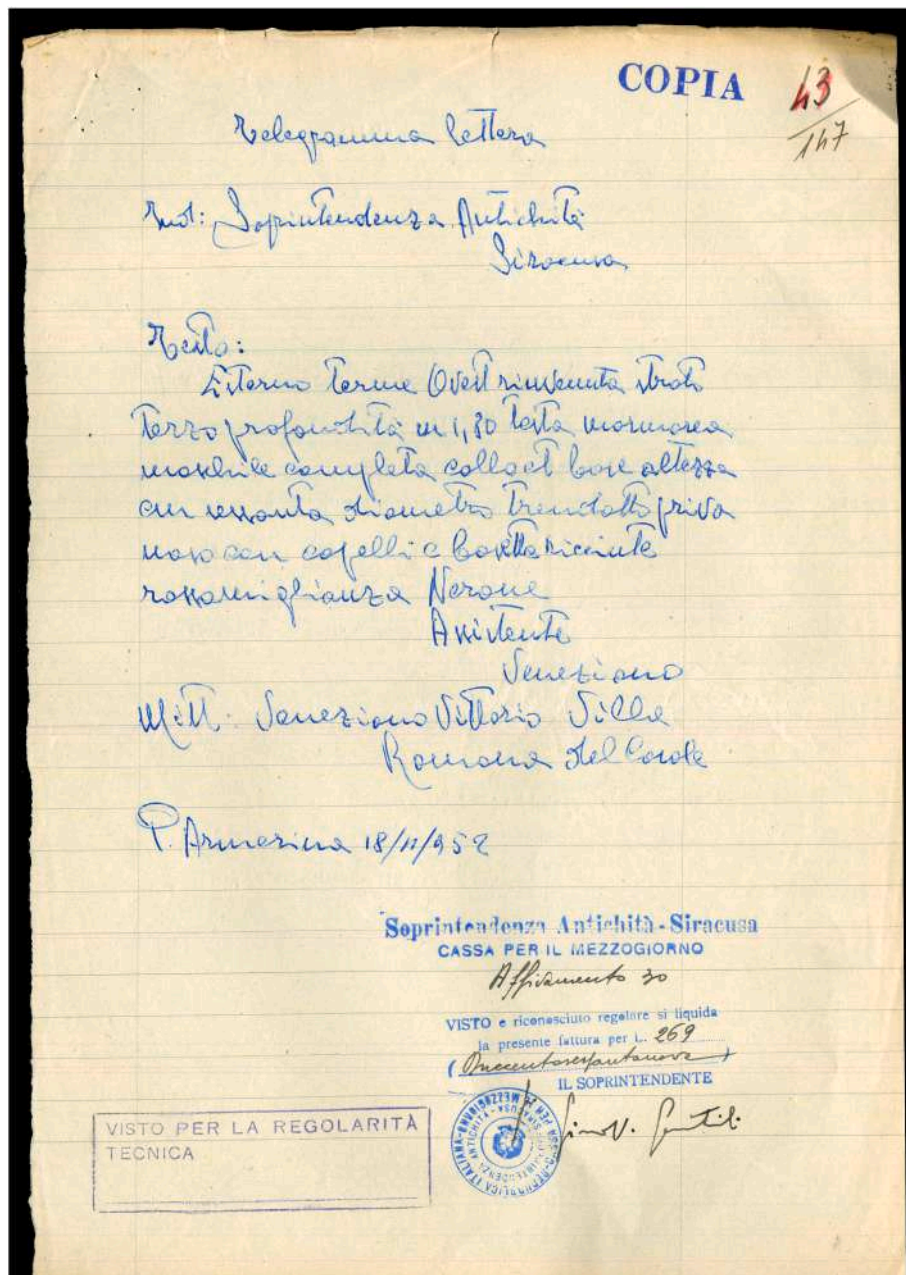 COPIA
43
147
Telegramma lettera
Ind: Soprintendenza Antichità
Siracusa
Testo:
Esterno terme Ovest rinvenuta strato
terzo profondità m 1,80 testa marmorea
maschile completa collo et base altezza
cm sessanta diametro trentotto priva
naso con capelli e basetta ricciute
rassomiglianza Nerone
Assistente
Veneziano
Mitt: Veneziano Vittorio Villa
Romana del Casale
P. Armerina 18/11/952
Soprintendenza Antichità - Siracusa
CASSA PER IL MEZZOGIORNO
Affidamento 30
VISTO e riconosciuto regolare si liquida
la presente fattura per L. 269
(Duecentosessantanove)
IL SOPRINTENDENTE
Gino V. Gentili
VISTO PER LA REGOLARITÀ
TECNICA